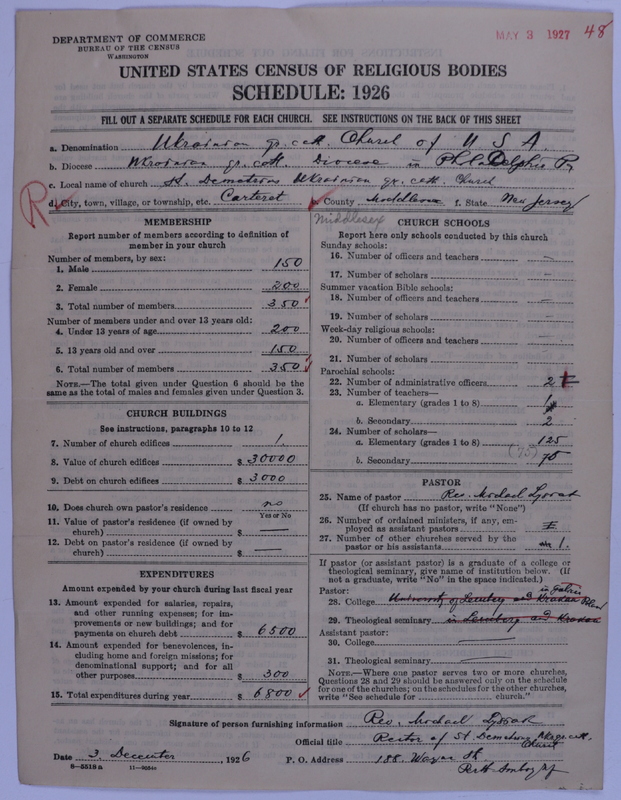 DEPARTMENT OF COMMERCE
BUREAU OF THE CENSUS
WASHINGTON
MAY 3 1927 48
UNITED STATES CENSUS OF RELIGIOUS BODIES
SCHEDULE: 1926
FILL OUT A SEPARATE SCHEDULE FOR EACH CHURCH. SEE INSTRUCTIONS ON THE BACK OF THIS SHEET
a. Denomination Ukrainian gr. cath. Church of U S A.
b. Diocese Ukrainian gr. cath. Diocese in Philadelphia Pa
c. Local name of church St. Demetrius Ukrainian gr. cath. Church
R d. City, town, village, or township, etc. Carteret e. County Middlesex f. State New Jersey
Middlesex
MEMBERSHIP
Report number of members according to definition of
member in your church
Number of members, by sex:
1. Male 150
2. Female 200
3. Total number of members 350
Number of members under and over 13 years old:
4. Under 13 years of age 200
5. 13 years old and over 150
6. Total number of members 350
NOTE.—The total given under Question 6 should be the
same as the total of males and females given under Question 3.
CHURCH BUILDINGS
See instructions, paragraphs 10 to 12
7. Number of church edifices 1.
8. Value of church edifices $ 30000
9. Debt on church edifices $ 3000
10. Does church own pastor's residence no
Yes or No
11. Value of pastor's residence (if owned by
church) $ —
12. Debt on pastor's residence (if owned by
church) $ —
EXPENDITURES
Amount expended by your church during last fiscal year
13. Amount expended for salaries, repairs,
and other running expenses; for im-
provements or new buildings; and for
payments on church debt $ 6500
14. Amount expended for benevolences, in-
cluding home and foreign missions; for
denominational support; and for all
other purposes $ 300
15. Total expenditures during year $ 6800
CHURCH SCHOOLS
Report here only schools conducted by this church
Sunday schools:
16. Number of officers and teachers —
17. Number of scholars —
Summer vacation Bible schools:
18. Number of officers and teachers —
19. Number of scholars —
Week-day religious schools:
20. Number of officers and teachers —
21. Number of scholars —
Parochial schools:
22. Number of administrative officers 2
23. Number of teachers—
a. Elementary (grades 1 to 8) 1
b. Secondary 2
24. Number of scholars—
a. Elementary (grades 1 to 8) 125
b. Secondary (75) 75
PASTOR
25. Name of pastor Rev. Michael
(If church has no pastor, write "None")
26. Number of ordained ministers, if any, em-
ployed as assistant pastors
27. Number of other churches served by the
pastor or his assistants 1.
If pastor (or assistant pastor) is a graduate of a college or
theological seminary, give name of institution below. (If
not a graduate, write "No" in the space indicated.)
Pastor:
28. College University of Lemberg and Krakau
29. Theological seminary in Lemberg and Krakau
Assistant pastor:
30. College
31. Theological seminary —
NOTE.—Where one pastor serves two or more churches,
Questions 28 and 29 should be answered only on the schedule
for one of the churches; on the schedules for the other churches,
write "See schedule for church."
Signature of person furnishing information Rev. Michael
Official title Rector of St Demetrius Church
Date 3. December, 1926 P. O. Address 188. St.
Perth Amboy NJ
8—5518a 11—9054